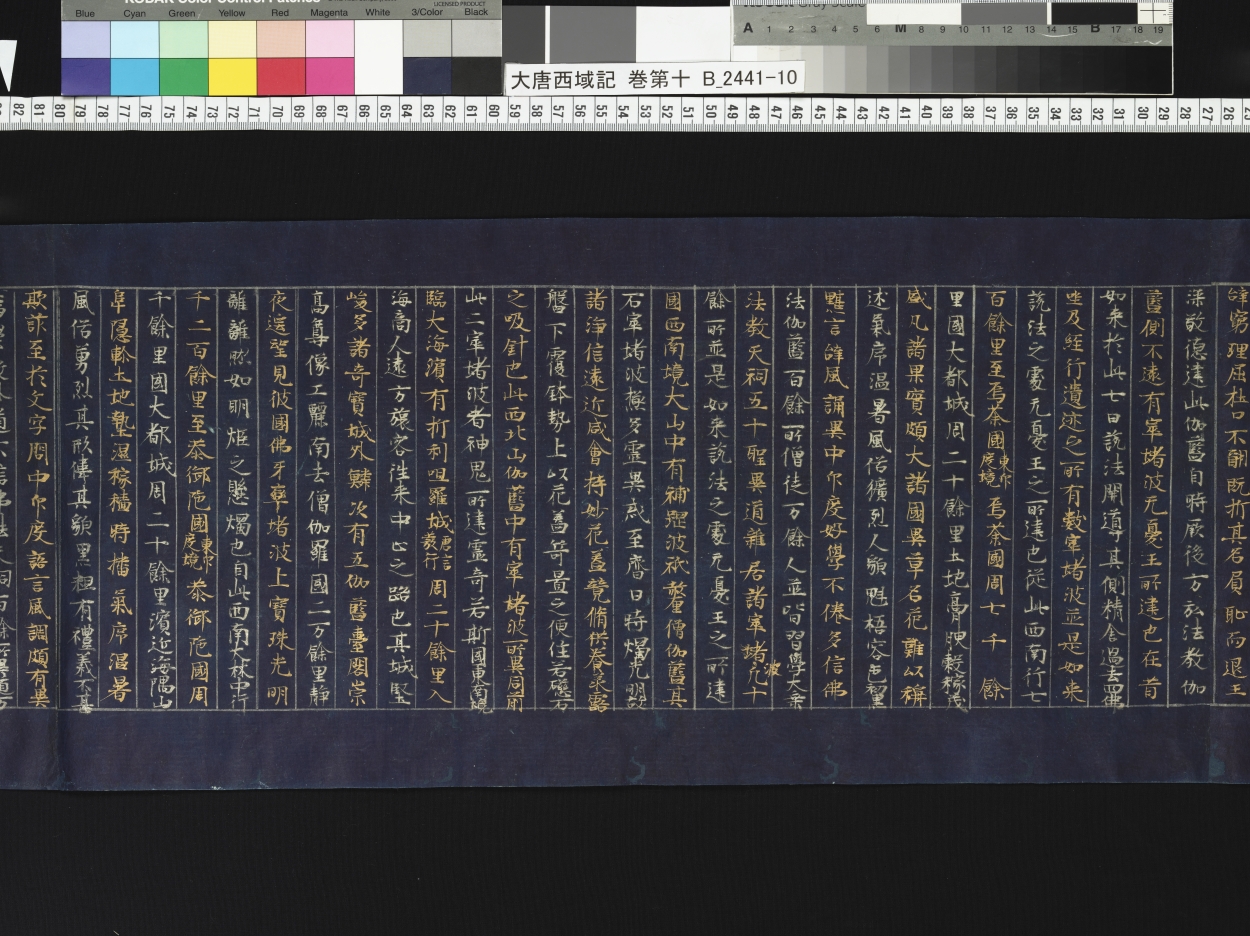 KODAK Color Control Patches
LICENSED PRODUCT
Blue Cyan Green Yellow Red Magenta White 3/Color Black
A 1 2 3 4 5 6 M 8 9 10 11 12 13 14 15 B 17 18 19
大唐西域記 巻第十 B_2441-10
82 81 80 79 78 77 76 75 74 73 72 71 70 69 68 67 66 65 64 63 62 61 60 59 58 57 56 55 54 53 52 51 50 49 48 47 46 45 44 43 42 41 40 39 38 37 36 35 34 33 32 31 30 29 28 27 26
辞窮理屈杜口不酬既折其名負恥而退王
深敬德建此伽藍自時厥後方弘法教伽
藍側不遠有窣堵波无憂王所建也在昔
如来於此七日說法開導其側精舍過去四佛
坐及經行遺迹之所有數窣堵波並是如来
說法之處无憂王之所建也從此西南行七
百餘里至烏荼國東印度境烏荼國周七千餘
里國大都城周二十餘里土地膏腴穀稼茂
盛凡諸果實頗大諸國異草名花難以稱
述氣序溫暑風俗獷烈人皃魁梧容色黧
黮言辞風調異中印度好學不倦多信佛
法伽藍百餘所僧徒万餘人並皆習學大乘
法教天祠五十所異道雜居諸窣堵波凡十
餘所並是如来說法之處无憂王之所建
國西南境大山中有補澀波祇釐僧伽藍其
石窣堵波極多靈異或至齋日時燭光明故
諸淨信遠近咸會持妙花蓋競脩供養承露
盤下覆鉢勢上以花蓋笴置之便住若礠石
之吸針也此西北山伽藍中有窣堵波所異同前
此二窣堵波者神鬼所建靈奇若斯國東南境
臨大海濱有折利呾羅城唐言發行周二十餘里入
海商人遠方旅客往来中止之路也其城堅
峻多諸奇寶城外鱗次有五伽藍臺閣崇
高尊像工麗南去僧伽羅國二万餘里靜
夜遥望見彼國佛牙窣堵波上寶珠光明
離離然如明炬之懸燭也自此西南大林中行
千二百餘里至恭御陁國東印度境恭御陁國周
千餘里國大都城周二十餘里濱近海隅山
阜隱軫土地墊濕稼穡時播氣序溫暑
風俗勇烈其形偉其皃黑粗有禮義不甚
欺詐至於文字同中印度語言風調頗有異